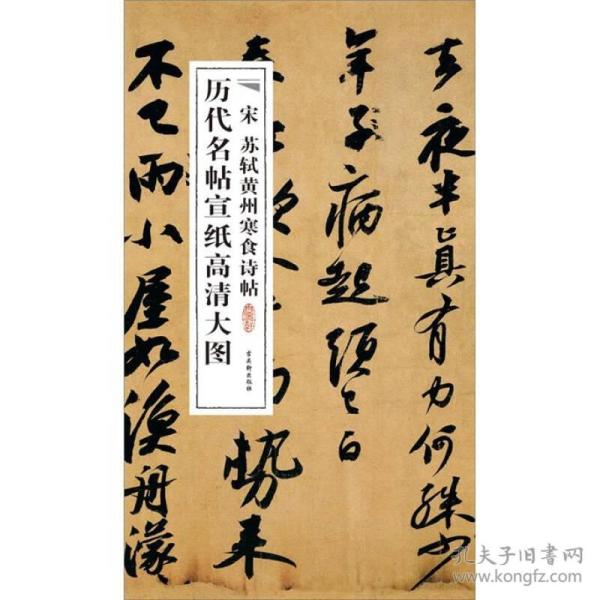 去夜半真有力何殊少
年子病起頭已白
勢来
不已雨小屋如漁舟濛
宋 苏轼黄州寒食诗帖
历代名帖宣纸高清大图
古吴轩出版社
孔夫子旧书网
www.kongfz.com